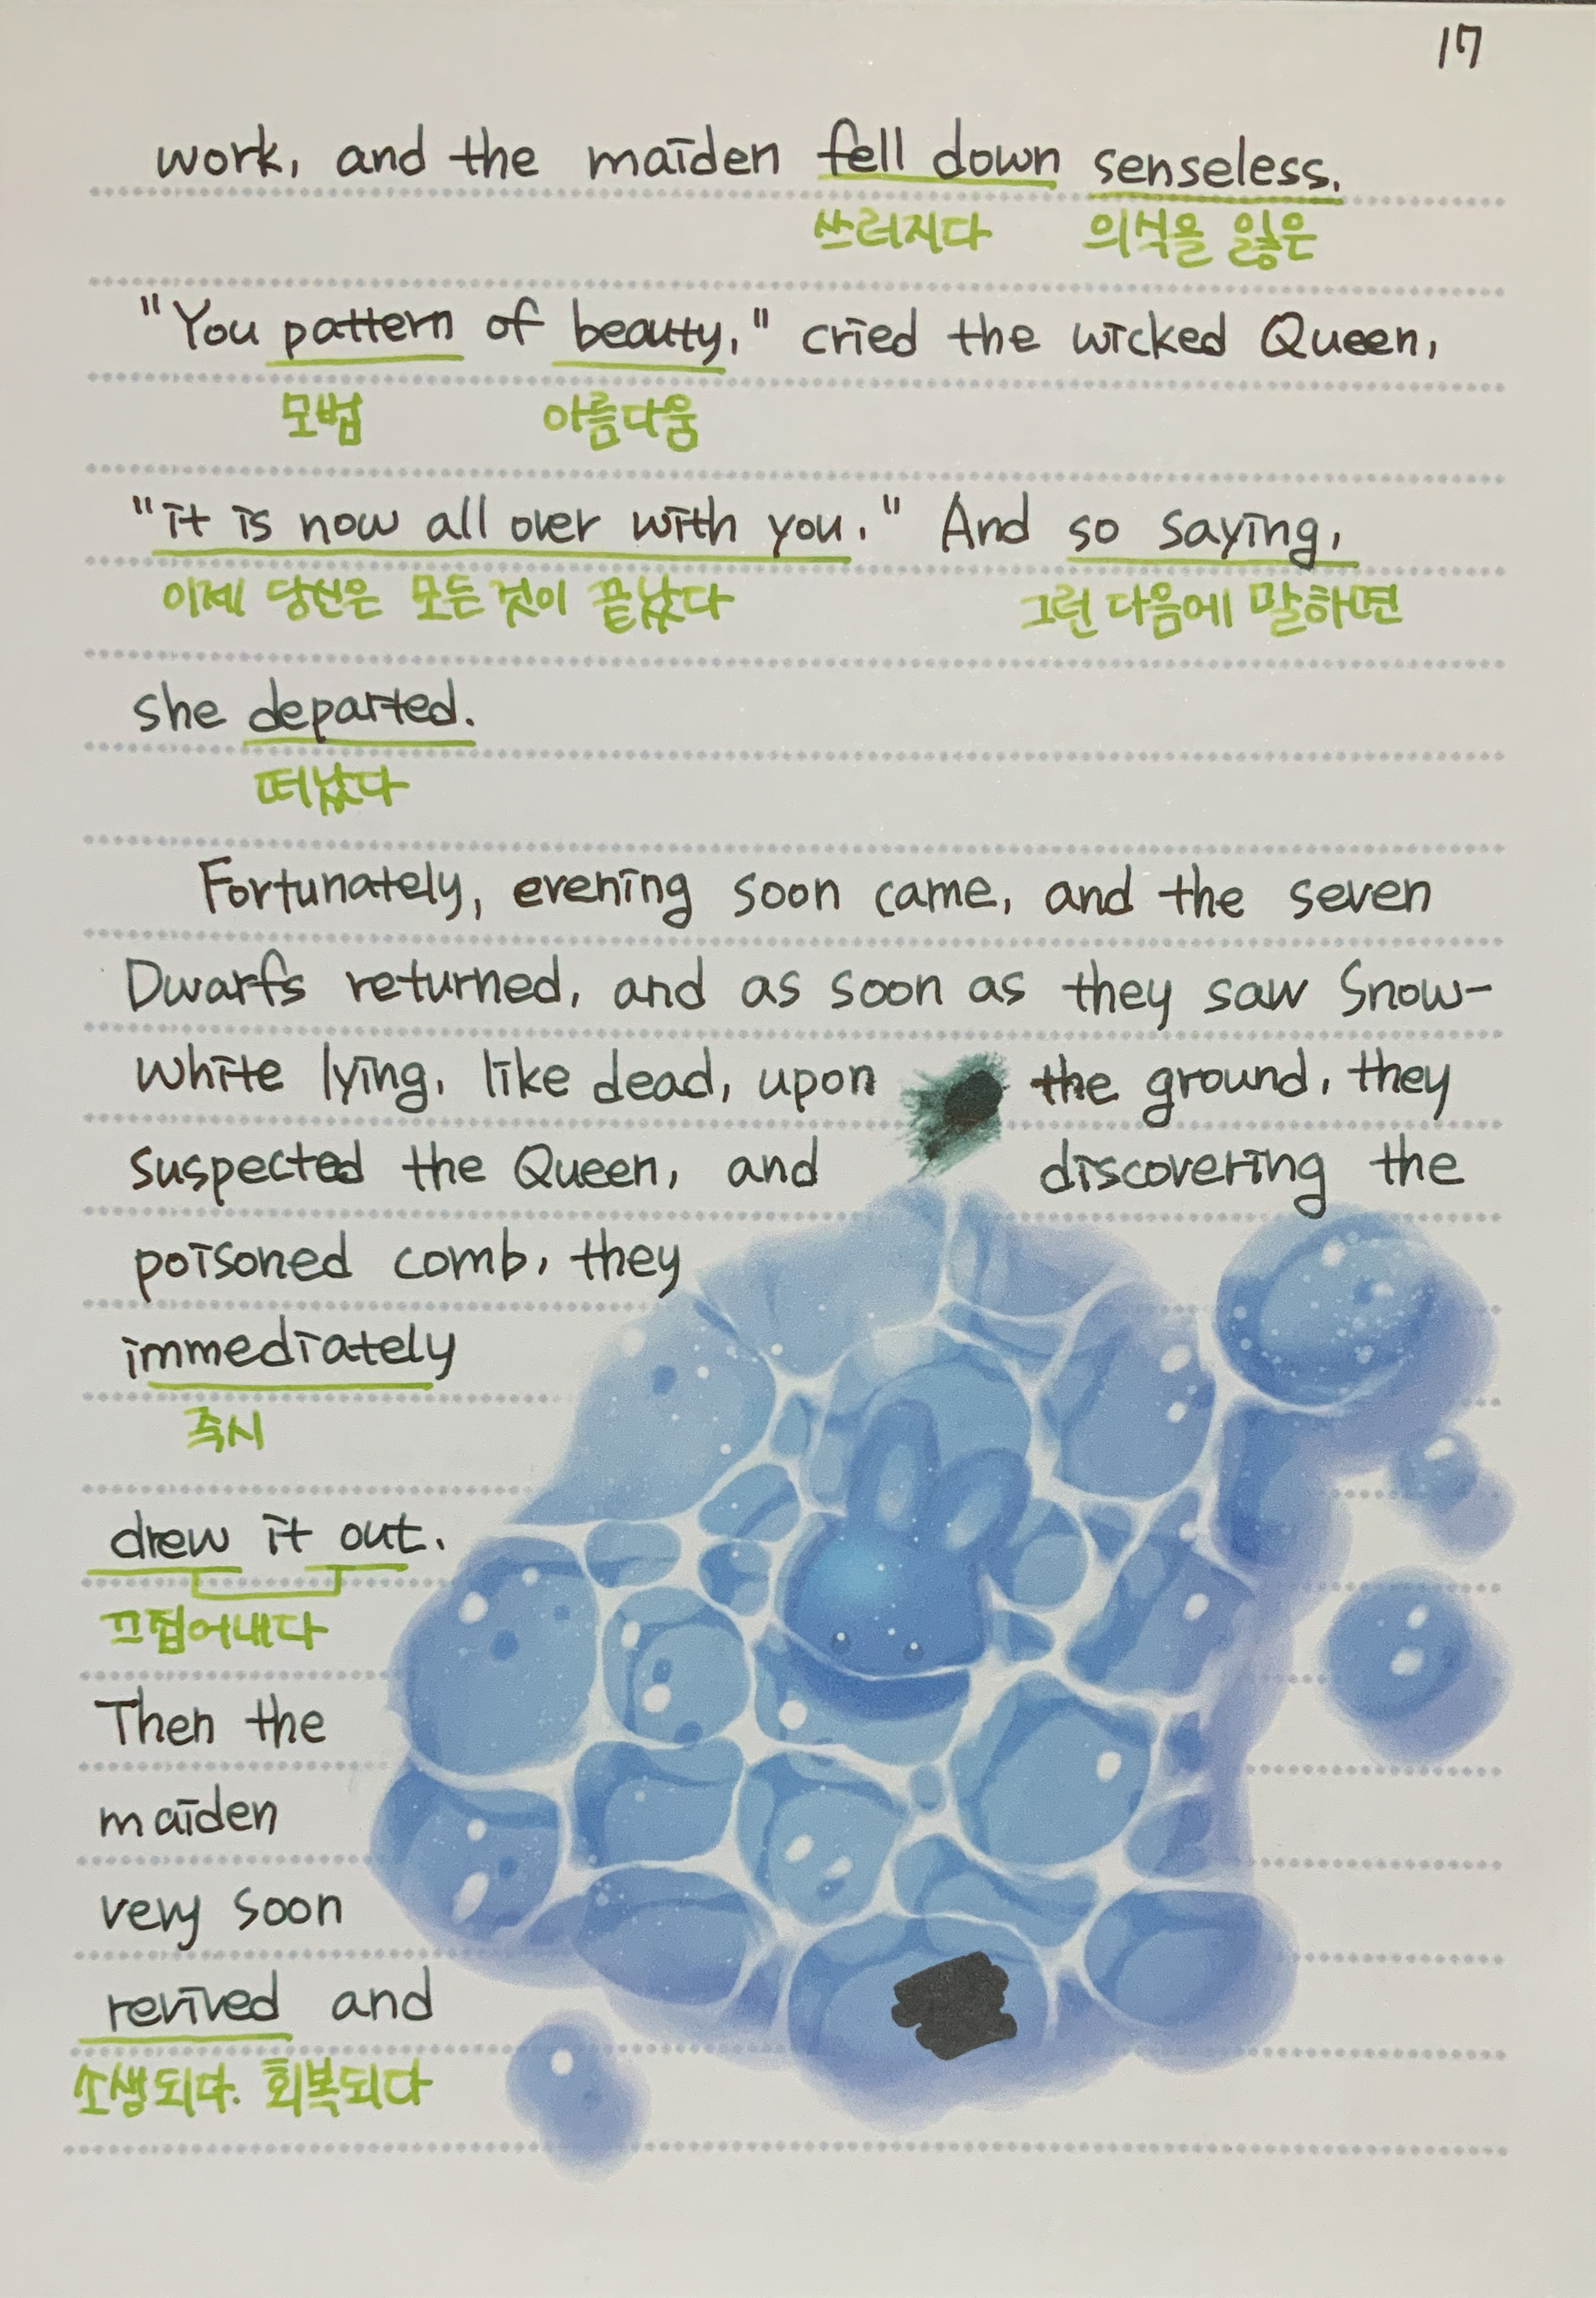 17
work, and the maiden fell down senseless.
쓰러지다 의식을 잃은
"You pattern of beauty," cried the wicked Queen,
모범 아름다움
"it is now all over with you." And so saying,
이제 당신은 모든 것이 끝났다 그런 다음에 말하면
she departed.
떠났다
Fortunately, evening soon came, and the seven
Dwarfs returned, and as soon as they saw Snow-
white lying, like dead, upon the ground, they
suspected the Queen, and discovering the
poisoned comb, they
immediately
즉시
drew it out.
끄집어내다
Then the
maiden
very soon
revived and
소생되다. 회복되다